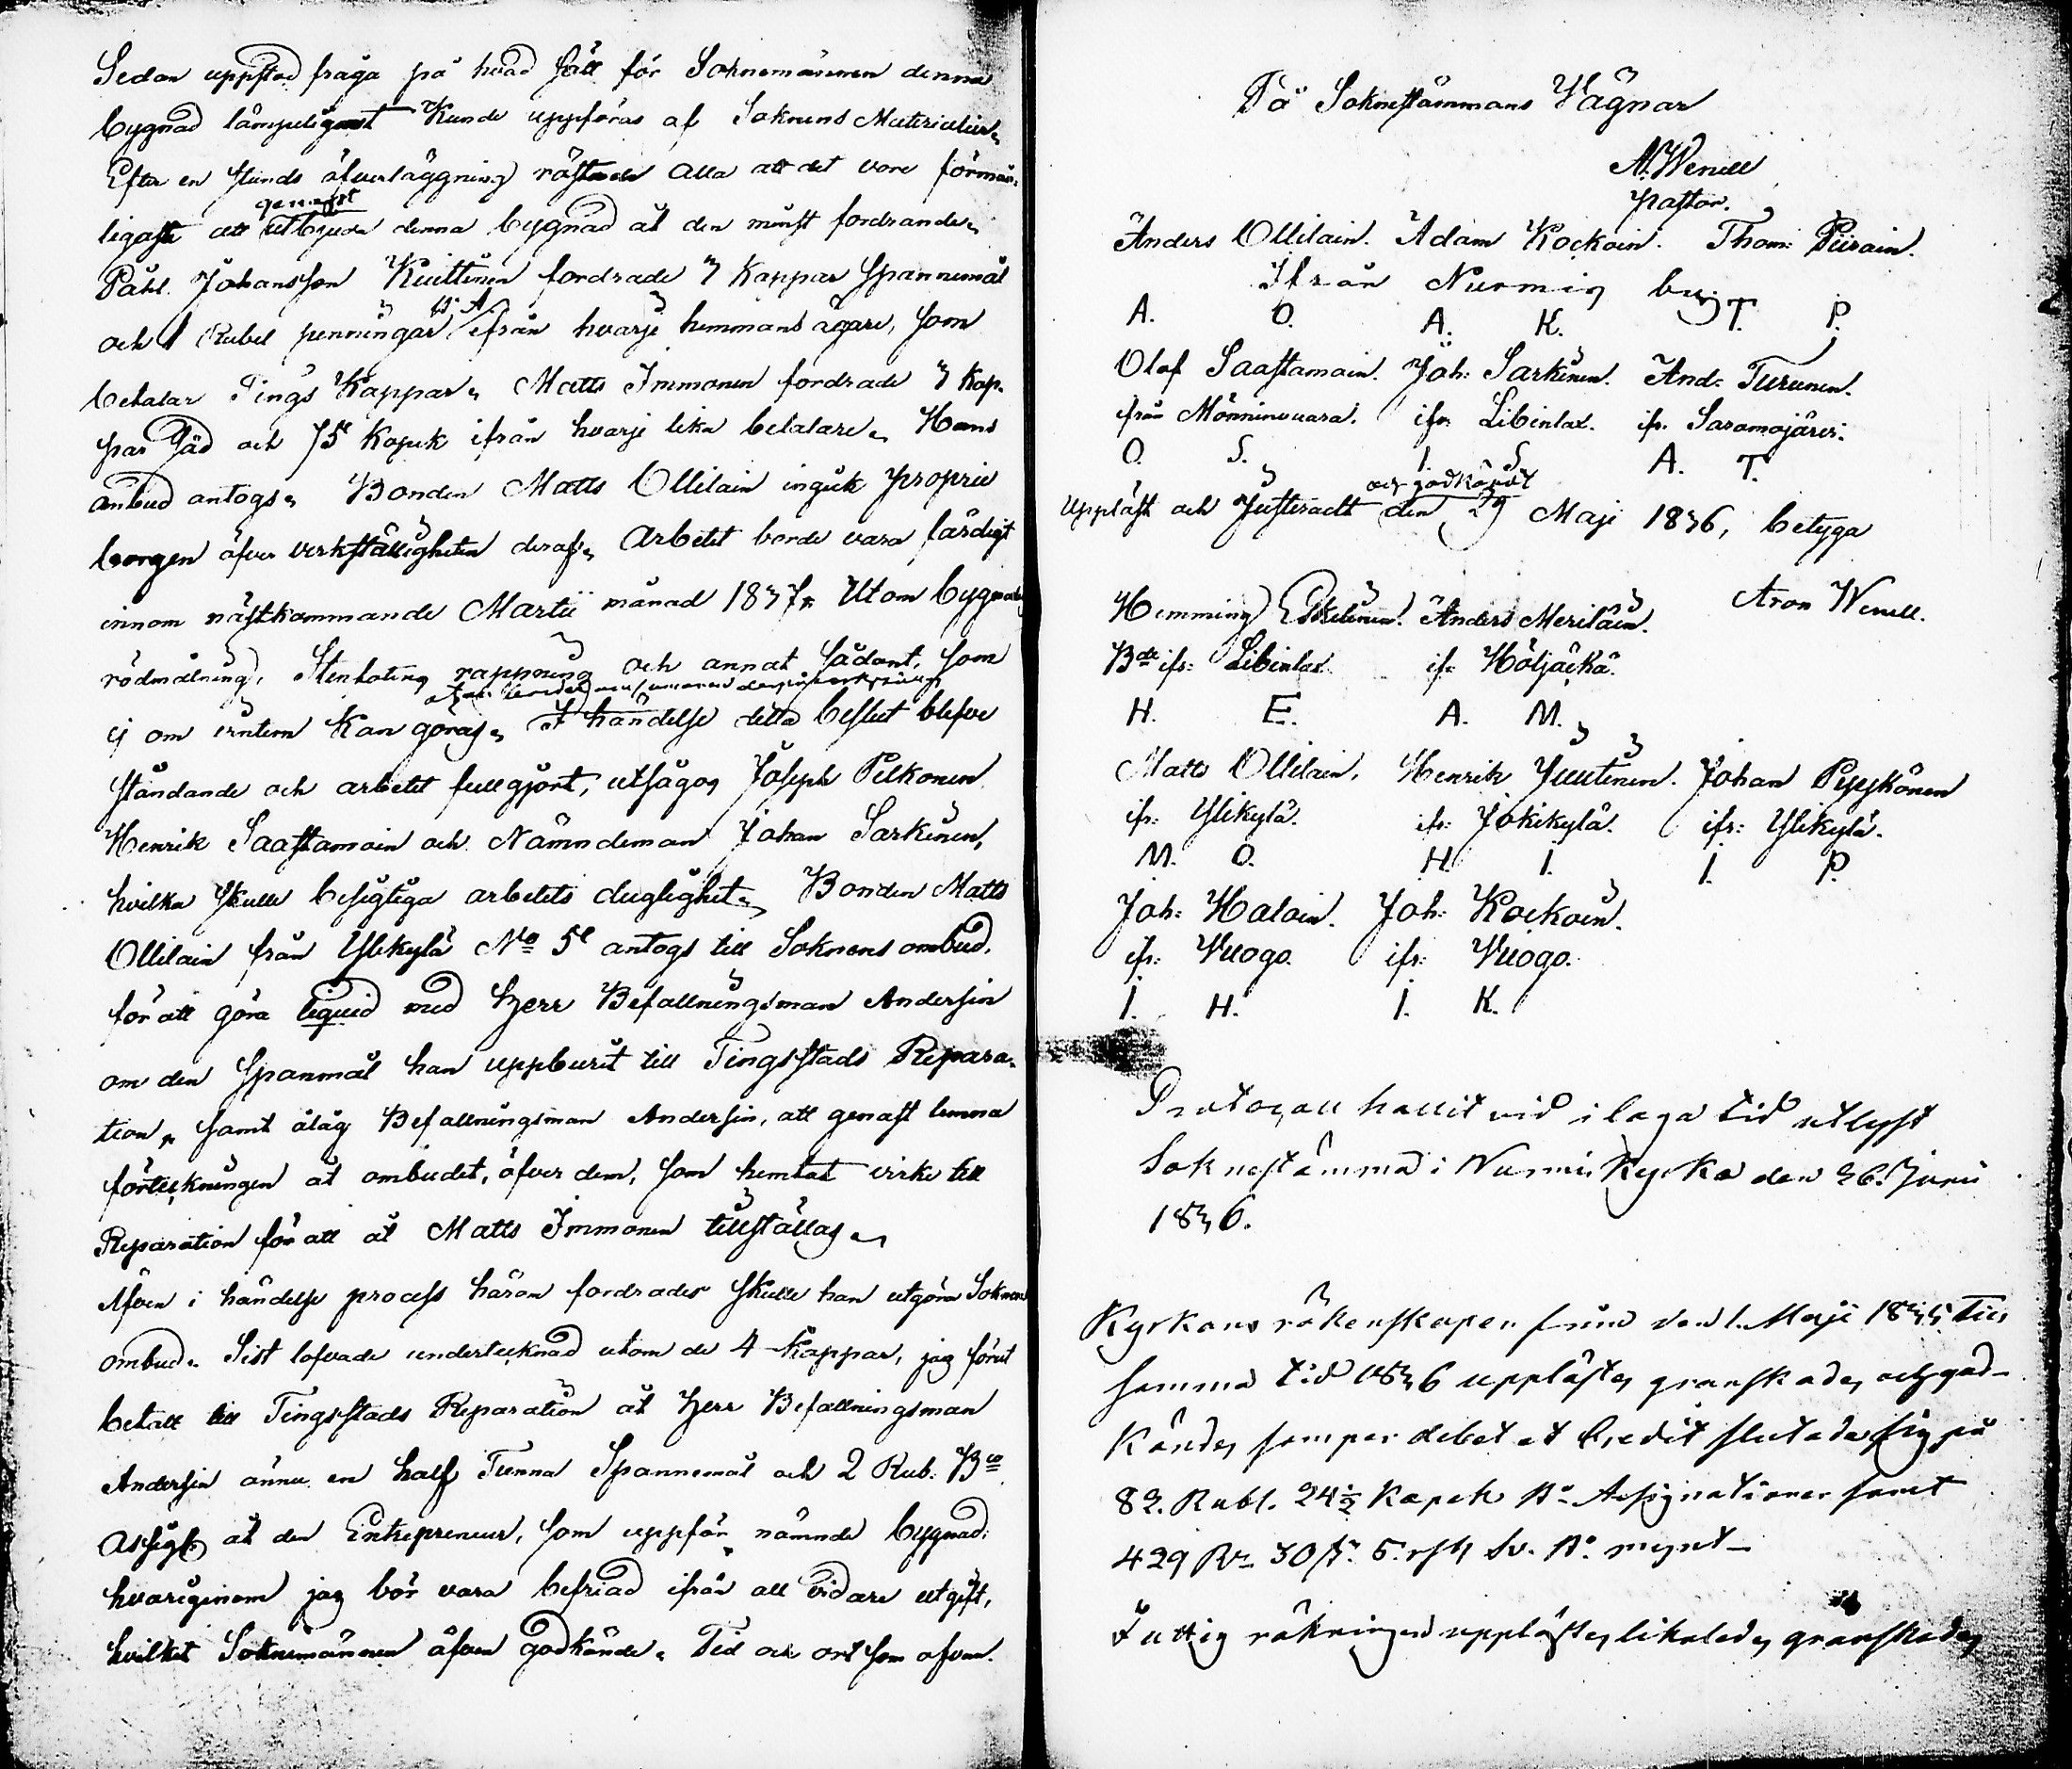 Sedan uppstod fråga på hvad sätt för Soknemännen denna
bygnad lämpeligast Kunde uppföras af Soknens Materialier.
Efter en stunds öfverläggning röstade alla att det vore förmån-
genast
ligast att utbjuda denna bygnad åt den minst fordrande.
Påhl Johansson Kuittinen fordrade 3 Kappar Spannemål
Bo A.
och 1 Rubel penningar ifrån hvarje hemmans ägare, som
betalar Tings Kappar. Matts Immonen fordrade 3 Kap-
par Säd och 75 Kopek ifrån hvarje lika betalare. Hans
anbud antogs. Bonden Matts Ollilain ingick proprie
borgen öfver verkställigheten deraf. Arbetet borde vara färdigt
innom nästkommande Martii månad 1837. Utom bygnads
rödmålning, Stenfoting rappning och annat sådant, som
ej om vintern Kan göras. I händelse detta beslut blefve
ståndande och arbetet fullgjort, utsågos Joseph Pelkonen
Henrik Saastamoin och Nämndeman Johan Sarkinen,
hvilka skulle besigtiga arbetets duglighet. Bonden Matts
Ollilain från Ylikylä No 5 antogs till Soknens ombud,
för att göra liquid med Herr Befallningsman Andersin
om den Spanmål han uppburit till Tingsstads Repara-
tion, samt ålåg Befallningsman Andersin, att genast lemna
förteckningen åt ombudet, öfver dem, som hemtat virke till
Reparation för att åt Matts Immonen tillställas.
Äfven i händelse process härom fordrades skulle han utgöra Soknens
ombud. Sist lofvade undertecknad utom de 4 Kappar, jag förut
betalt till Tingsstads Reparation åt Herr Befallningsman
Andersin ännu en half Tunna Spannemål och 2 Rub. Bco
Assign. åt den Entrepreneur, som uppför nämnde bygnad;
hvarigenom jag bör vara befriad ifrån all vidare utgift,
hvilket Soknemännen äfven godkände. Tid och ort som ofvan.
På Soknestämmans Vägnar
A. Wenell
Pastor.
Anders Ollilain. Adam Kockoin. Thom: Piirain.
Ifrån Nurmis by
A. O. A. K. T. P.
Olof Saastamoin. Joh: Sarkinen. And: Turunen.
från Mönninvaara. ifr. Libinlax. ifr. Saramojärvi.
O. S. I. S. A. T.
och godkändt
Uppläst och Justeradt den 29 Maji 1836, betyga
Aron Wenell.
Hemming Eskelinen. Anders Meriläin.
Bde ifr: Libinlax ifr. Höljäkkä.
H. E. A. M.
Matts Ollilain. Henrik Juutinen. Johan Pyykönen
ifr: Ylikylä. ifr: Jokikylä. ifr: Ylikylä.
M. O. H. I. I. P.
Joh: Haloin. Joh: Kockoin.
ifr: Wuogo. ifr: Wuogo.
I. H. I. K.
Protocoll hållit vid i laga tid utlyst
Soknestämma i Nurmis Kyrka den 26. Junii
1836.
Kyrkans räkenskaper från den 1. Maji 1835 till
samma tid 1836 upplästes, granskades och god-
Kändes, som per debet et Credit slutade sig på
82. Rubl. 24½ Kopek Bo Assignationer samt
429 Rr. 30 s. 5. rst. Sv. Bo mynt
Fattig räkningen upplästes, likaledes granskades